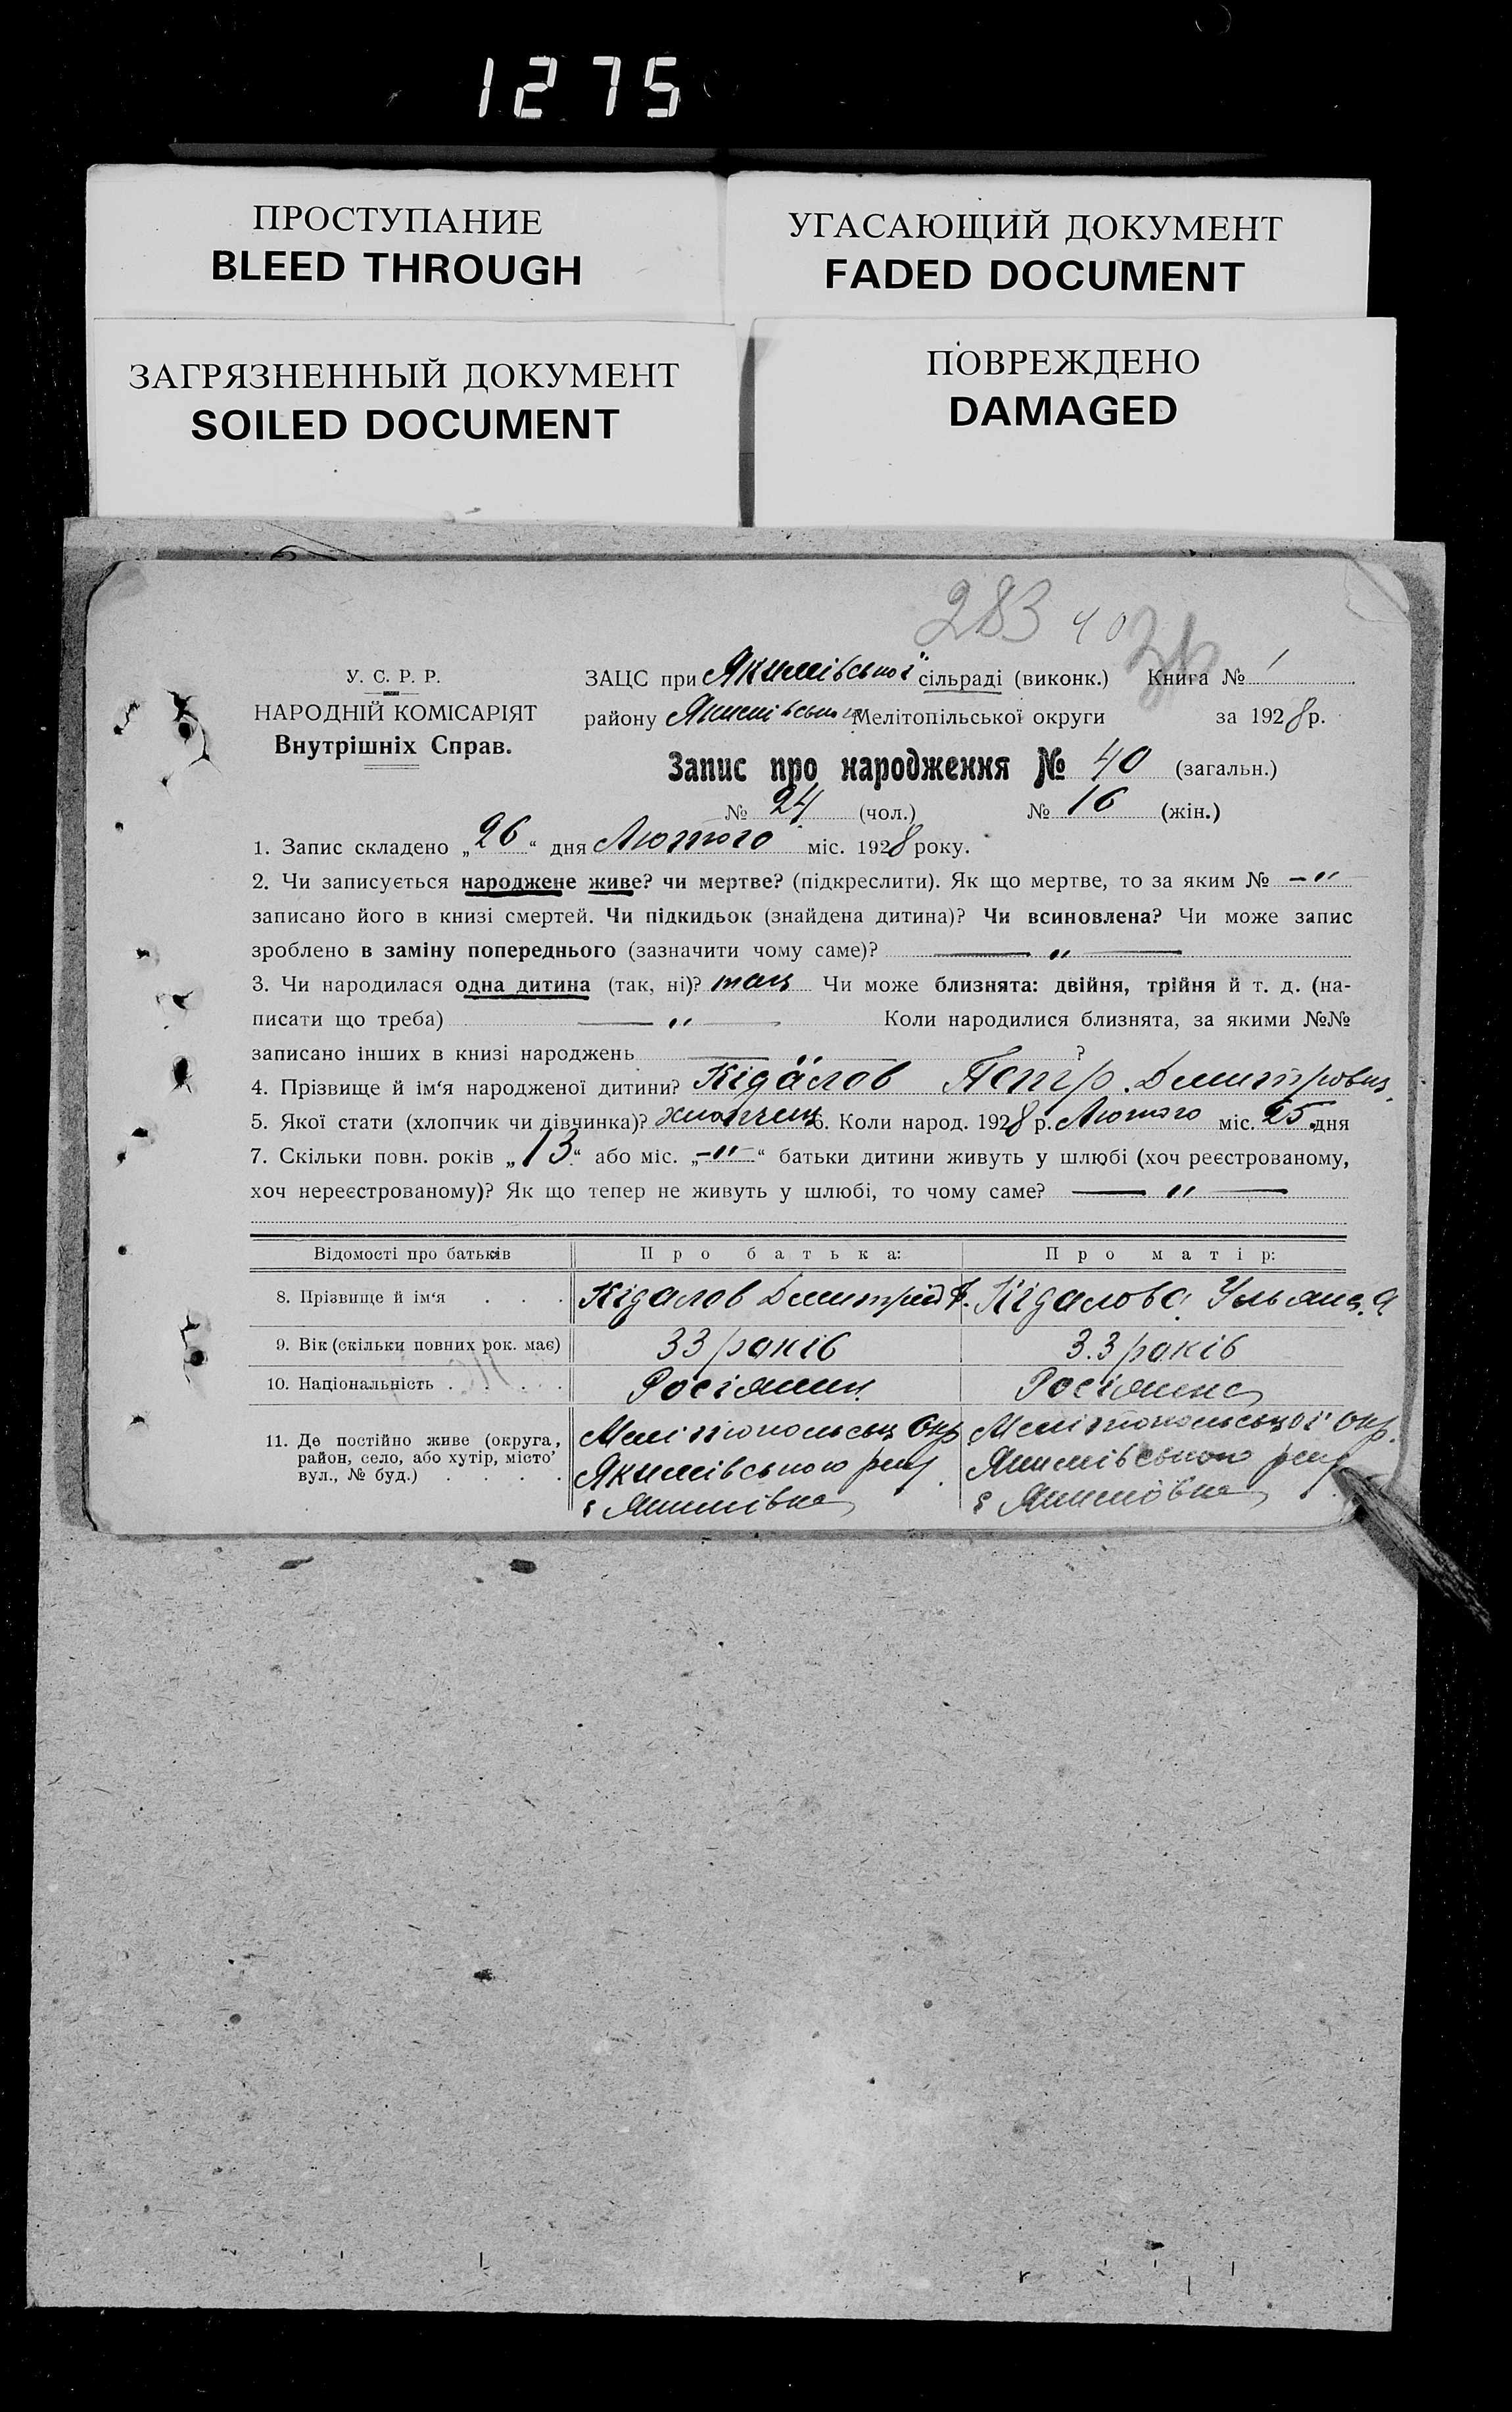 1275
ПРОСТУПАНИЕ
BLEED THROUGH
УГАСАЮЩИЙ ДОКУМЕНТ
FADED DOCUMENT
ЗАГРЯЗНЕННЫЙ ДОКУМЕНТ
SOILED DOCUMENT
ПОВРЕЖДЕНО
DAMAGED
283 40 36
У. С. Р. Р.
НАРОДНІЙ КОМІСАРІЯТ
Внутрішніх Справ.
ЗАЦС при Якимівської сільраді (виконк.) Книга № 1
району Якимівського Мелітопільської округи за 1928 р.
Запис про народження № 40 (загальн.)
№ 24 (чол.) № 16 (жін.)
1. Запис складено „26“ дня Лютого міс. 1928 року.
2. Чи записується народжене живе? чи мертве? (підкреслити). Як що мертве, то за яким № –"
записано його в книзі смертей. Чи підкидьок (знайдена дитина)? Чи всиновлена? Чи може запис
зроблено в заміну попереднього (зазначити чому саме)? — " —
3. Чи народилася одна дитина (так, ні)? так Чи може близнята: двійня, трійня й т. д. (на-
писати що треба) — " — Коли народилися близнята, за якими №№
записано інших в книзі народжень — " — ?
4. Прізвище й ім‘я народженої дитини? Кідалов Петр Дмитрович
5. Якої стати (хлопчик чи дівчинка)? хлопчец 6. Коли народ. 1928 р. Лютого міс. 25 дня
7. Скільки повн. років „13“ або міс. „–"–“ батьки дитини живуть у шлюбі (хоч реєстрованому,
хоч нереєстрованому)? Як що тепер не живуть у шлюбі, то чому саме? — " —
Відомості про батьків Про батька: Про матір:
8. Прізвище й ім‘я . . . Кідалов Дмитрій Ф. Кідалова Ульяна Я
9. Вік (скільки повних рок. має) 33 років 33 років
10. Національність . . . . Росіянин Росіянка
11. Де постійно живе (округа, район, село, або хутір, місто’ вул., № буд.) . . . .
Мелітопольськ Окр Якимівського рай с Якимівка
Мелітопольської Окр. Якимівського рай с Якимовка